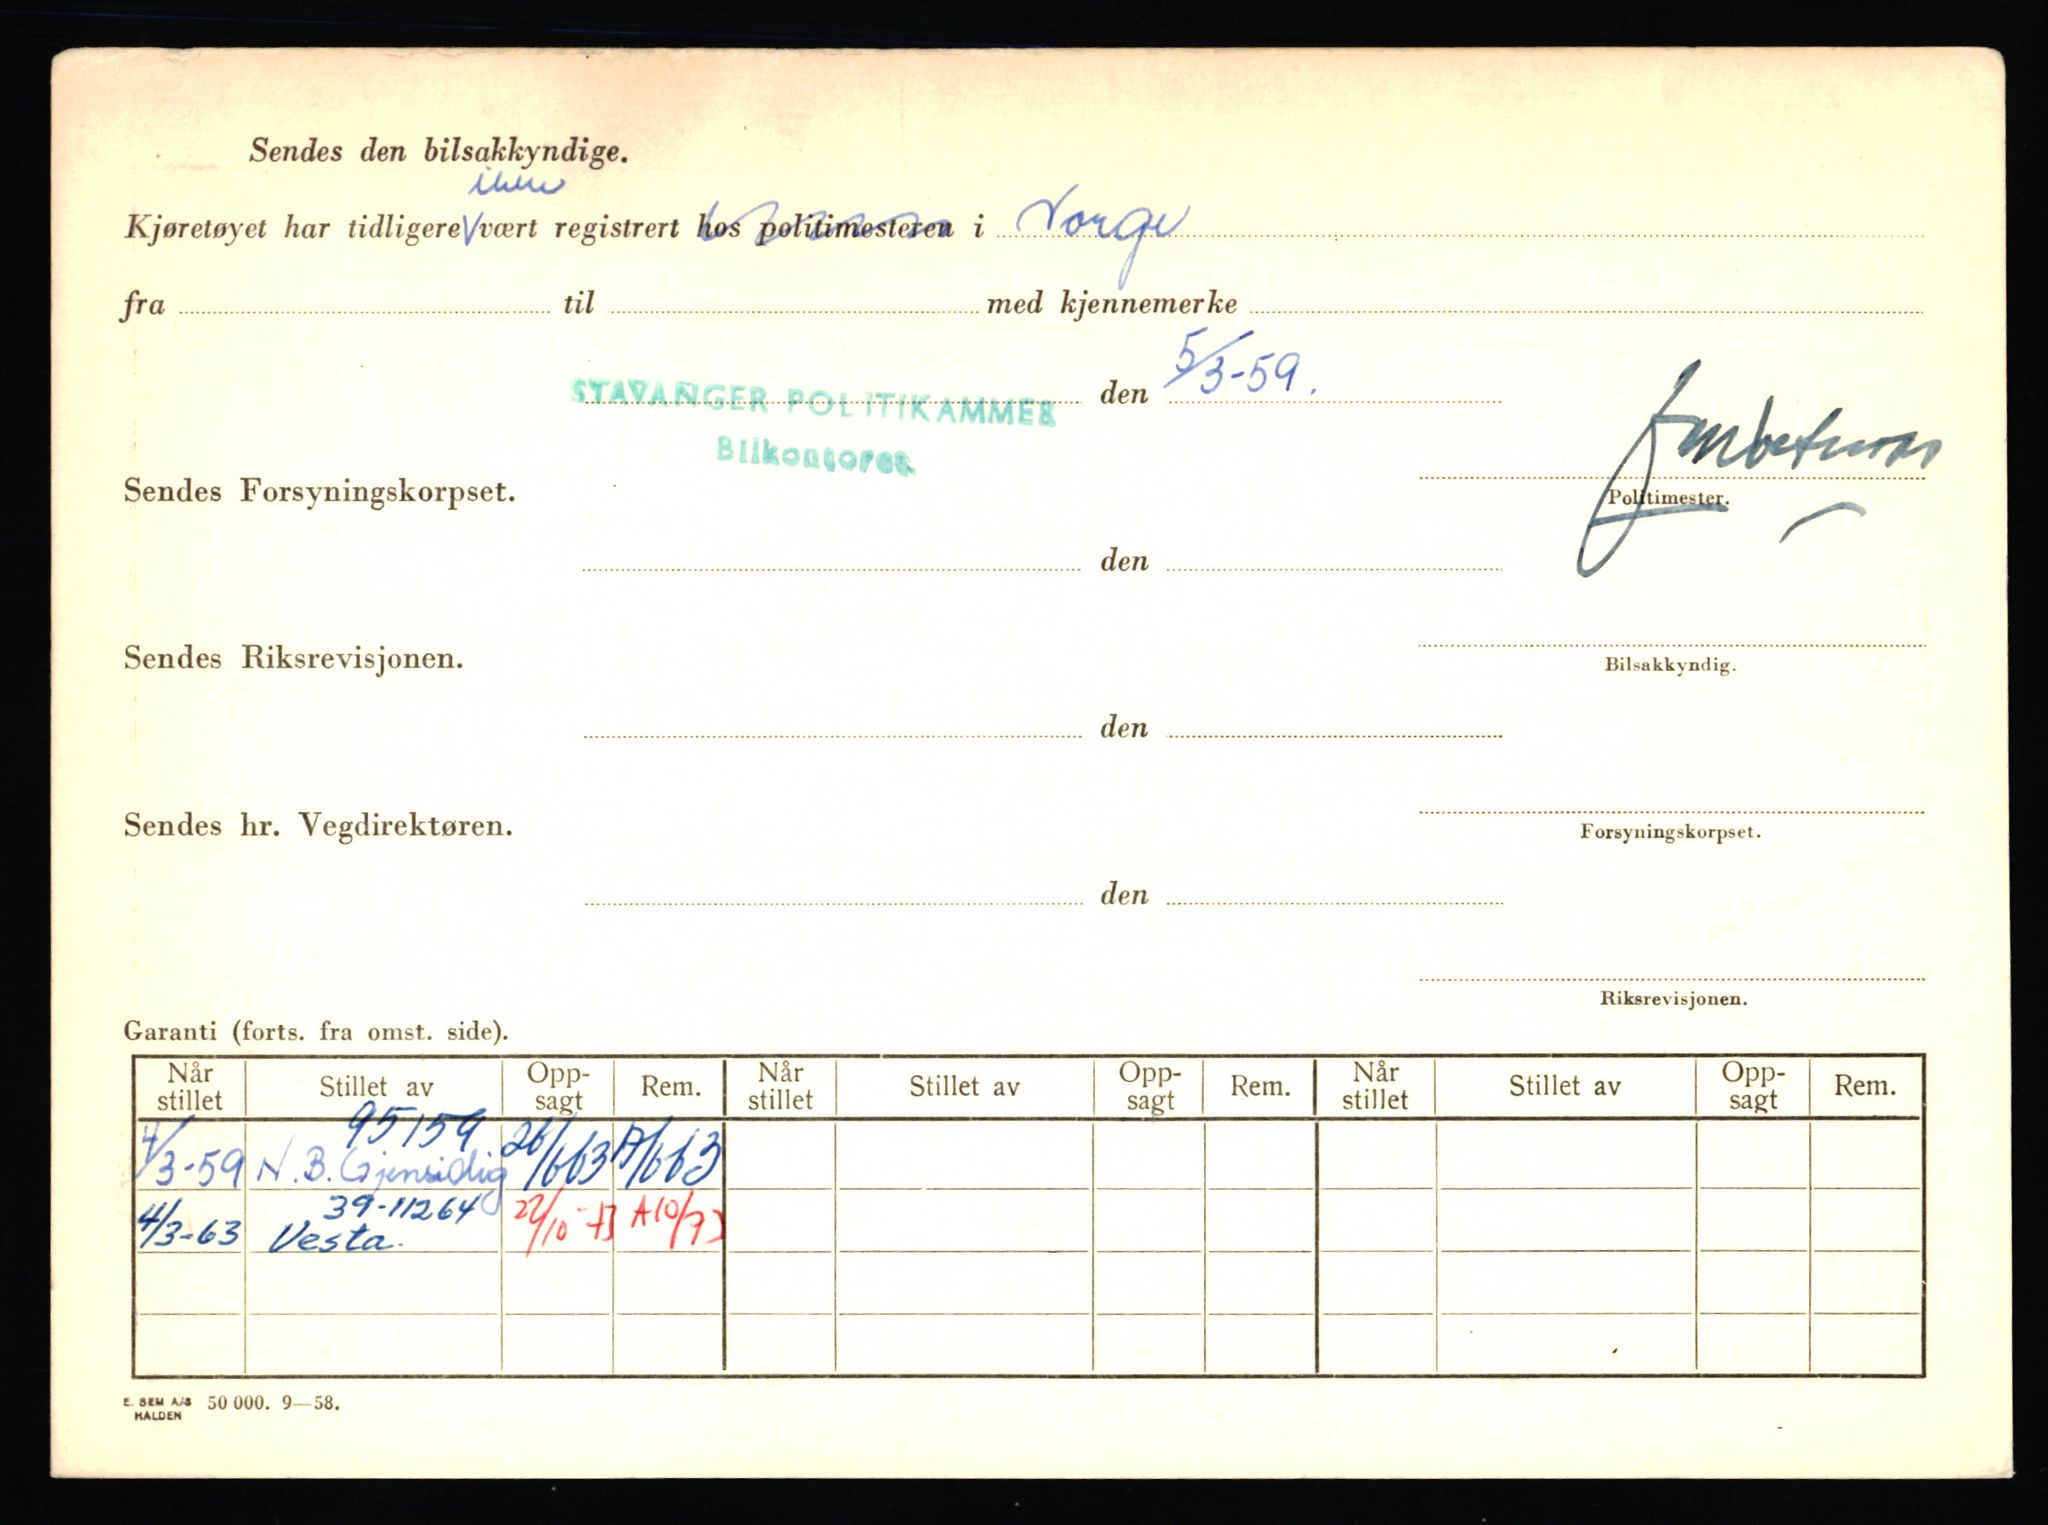 Sendes den bilsakkyndige.
ikke
Kjøretøyet har tidligere V vært registrert hos politimesteren i Norge
fra til med kjennemerke
STAVANGER POLITIKAMMER den 5/3-59.
Bilkontoret
Sendes Forsyningskorpset.
Politimester.
den
Sendes Riksrevisjonen.
Bilsakkyndig.
den
Sendes hr. Vegdirektøren.
Forsyningskorpset.
den
Riksrevisjonen.
Garanti (forts. fra omst. side).
Når stillet Stillet av Opp-sagt Rem. Når stillet Stillet av Opp-sagt Rem. Når stillet Stillet av Opp-sagt Rem.
95159
4/3-59 N.B. Gjensidig 26/663 A/663
39-11264
4/3-63 Vesta. 22/10-73 A10/73
E. SEM A/S 50 000. 9—58.
HALDEN